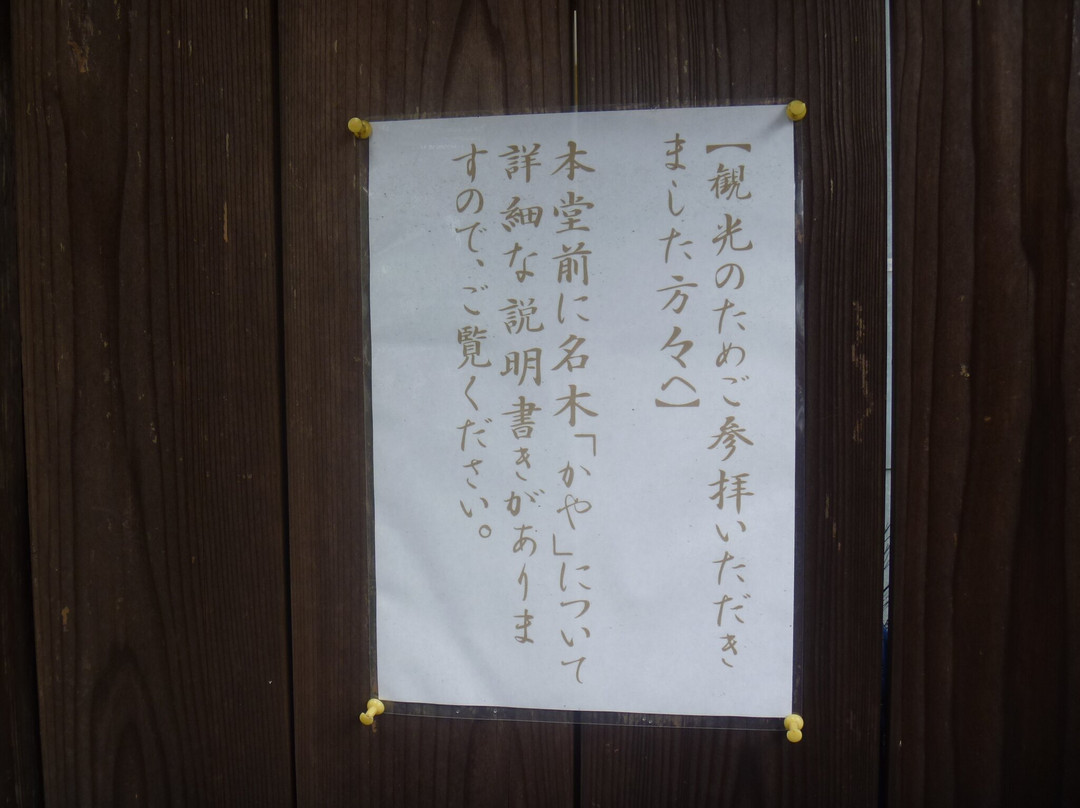 【観光のためご参拝いただき
ました方々へ】
本堂前に名木「かや」について
詳細な説明書きがありま
すので、ご覧ください。